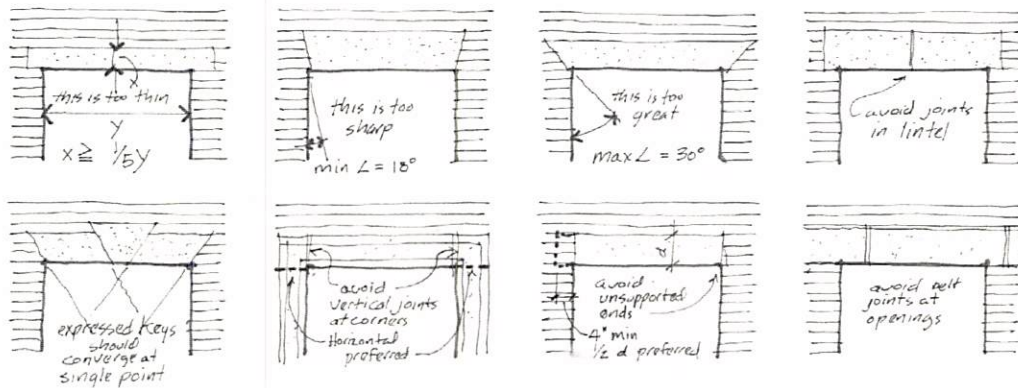 x
this is too thin
y
x ≧ 1/5 y
this is too
sharp
min ∠ = 18°
this is too
great
max ∠ = 30°
avoid joints
in lintel
expressed Keys
should
converge at
single point
avoid
vertical joints
at corners
Horizontal
preferred
d
avoid
unsupported
ends
4" min
1/2 d preferred
avoid belt
joints at
openings